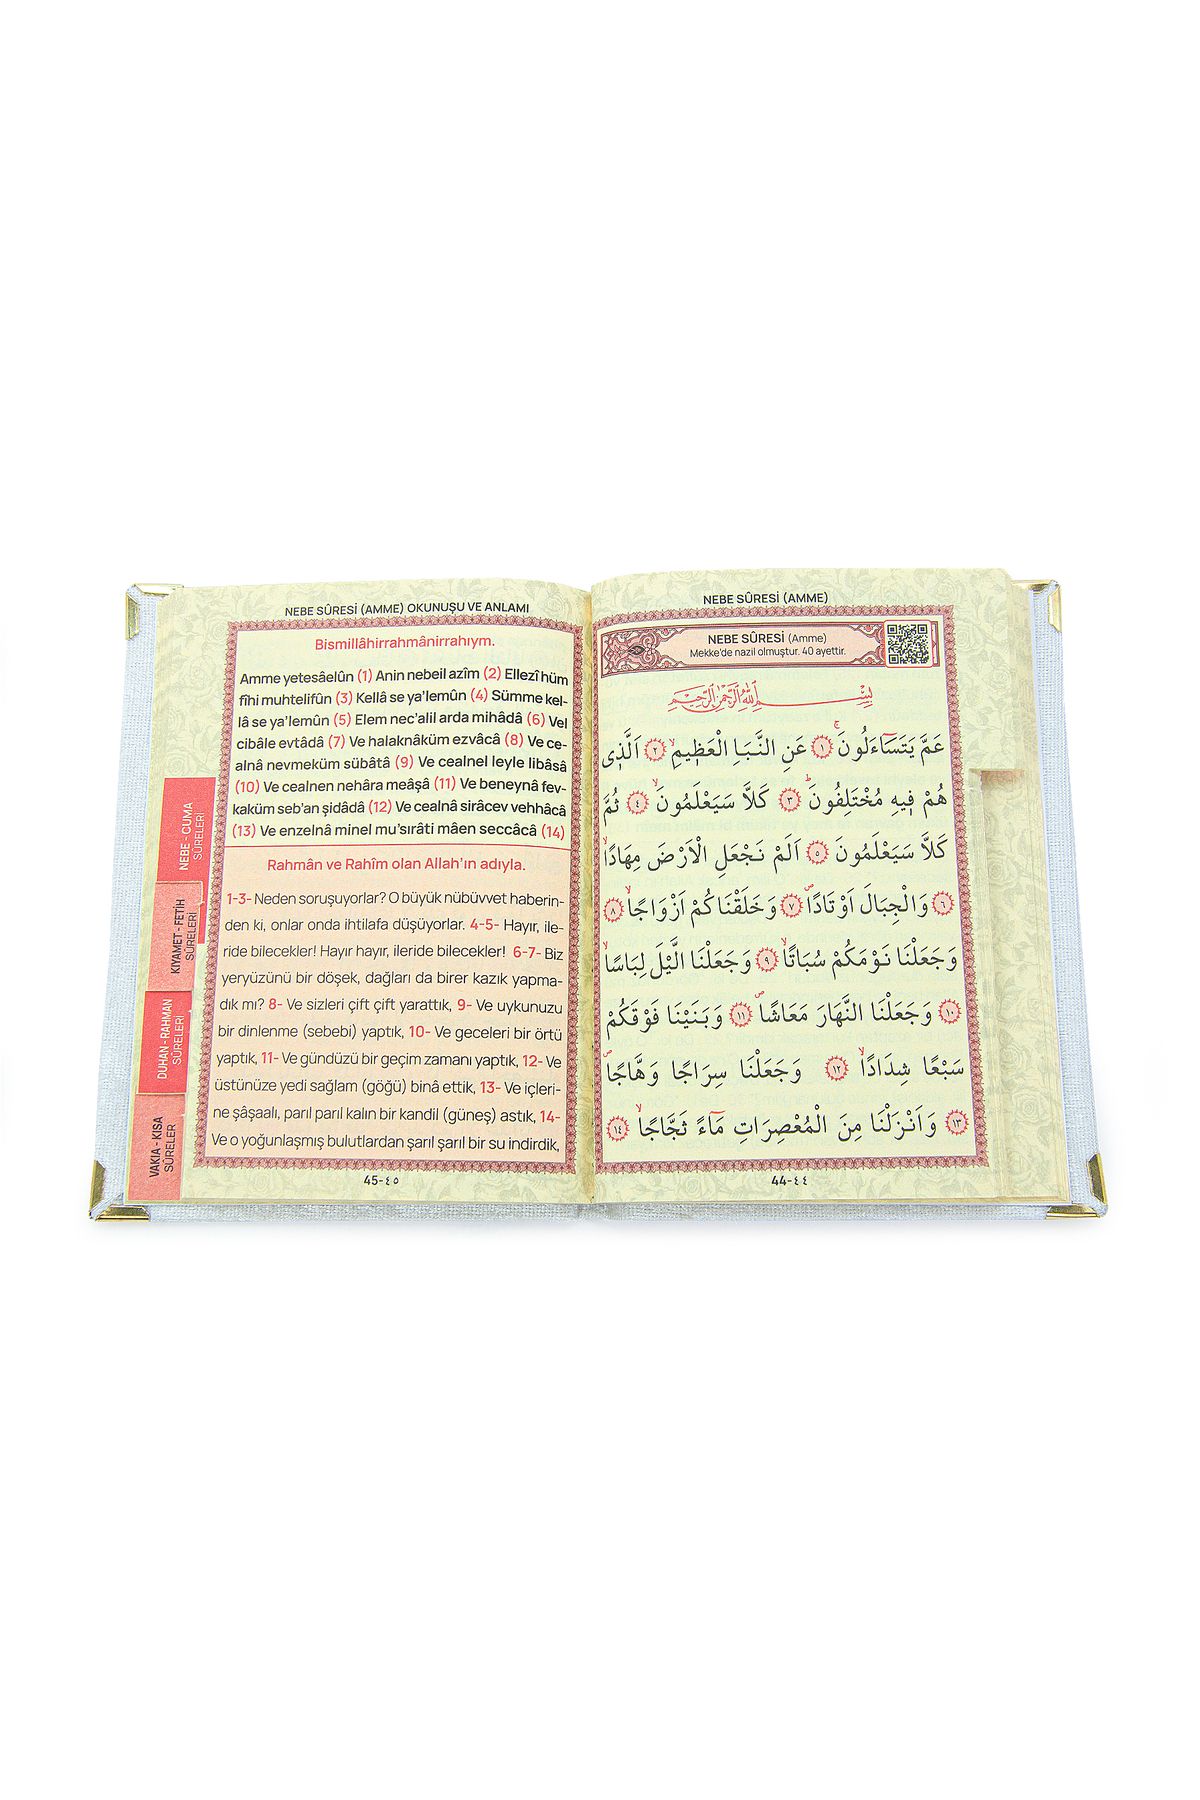 NEBE SÛRESİ (AMME) OKUNUŞU VE ANLAMI
Bismillâhirrahmânirrahıym.
Amme yetesâelûn (1) Anin nebeil azîm (2) Ellezî hüm
fîhi muhtelifûn (3) Kellâ se ya'lemûn (4) Sümme kel-
lâ se ya'lemûn (5) Elem nec'alil arda mihâdâ (6) Vel
cibâle evtâdâ (7) Ve halaknâküm ezvâcâ (8) Ve ce-
alnâ nevmeküm sübâtâ (9) Ve cealnel leyle libâsâ
(10) Ve cealnen nehâra meâşâ (11) Ve beneynâ fev-
kaküm seb'an şidâdâ (12) Ve cealnâ sirâcev vehhâcâ
(13) Ve enzelnâ minel mu'sırâti mâen seccâcâ (14)
Rahmân ve Rahîm olan Allah'ın adıyla.
1-3- Neden soruşuyorlar? O büyük nübüvvet haberin-
den ki, onlar onda ihtilafa düşüyorlar. 4-5- Hayır, ile-
ride bilecekler! Hayır hayır, ileride bilecekler! 6-7- Biz
yeryüzünü bir döşek, dağları da birer kazık yapma-
dık mı? 8- Ve sizleri çift çift yarattık, 9- Ve uykunuzu
bir dinlenme (sebebi) yaptık, 10- Ve geceleri bir örtü
yaptık, 11- Ve gündüzü bir geçim zamanı yaptık, 12- Ve
üstünüze yedi sağlam (göğü) binâ ettik, 13- Ve içleri-
ne şâşaalı, parıl parıl kalın bir kandil (güneş) astık, 14-
Ve o yoğunlaşmış bulutlardan şarıl şarıl bir su indirdik,
45-٤٥
NEBE - CUMA
SÛRELERİ
KIYAMET - FETİH
SÛRELERİ
DUHAN - RAHMAN
SÛRELERİ
VAKIA - KISA
SÛRELER
NEBE SÛRESİ (AMME)
NEBE SÛRESİ (Amme)
Mekke'de nazil olmuştur. 40 ayettir.
بِسْمِ اللهِ الرَّحْمٰنِ الرَّحِيمِ
عَمَّ يَتَسَٓاءَلُونَۚ ﴿١﴾ عَنِ النَّبَاِ الْعَظ۪يمِۙ ﴿٢﴾ اَلَّذ۪ى
هُمْ ف۪يهِ مُخْتَلِفُونَۜ ﴿٣﴾ كَلَّا سَيَعْلَمُونَۙ ﴿٤﴾ ثُمَّ
كَلَّا سَيَعْلَمُونَ ﴿٥﴾ اَلَمْ نَجْعَلِ الْاَرْضَ مِهَادًاۙ
﴿٦﴾ وَالْجِبَالَ اَوْتَادًاۖ ﴿٧﴾ وَخَلَقْنَاكُمْ اَزْوَاجًاۙ ﴿٨﴾
وَجَعَلْنَا نَوْمَكُمْ سُبَاتًاۙ ﴿٩﴾ وَجَعَلْنَا الَّيْلَ لِبَاسًاۙ
﴿١٠﴾ وَجَعَلْنَا النَّهَارَ مَعَاشًاۖ ﴿١١﴾ وَبَنَيْنَا فَوْقَكُمْ
سَبْعًا شِدَادًاۙ ﴿١٢﴾ وَجَعَلْنَا سِرَاجًا وَهَّاجًاۖ
﴿١٣﴾ وَاَنْزَلْنَا مِنَ الْمُعْصِرَاتِ مَٓاءً ثَجَّاجًاۙ ﴿١٤﴾
44-٤٤